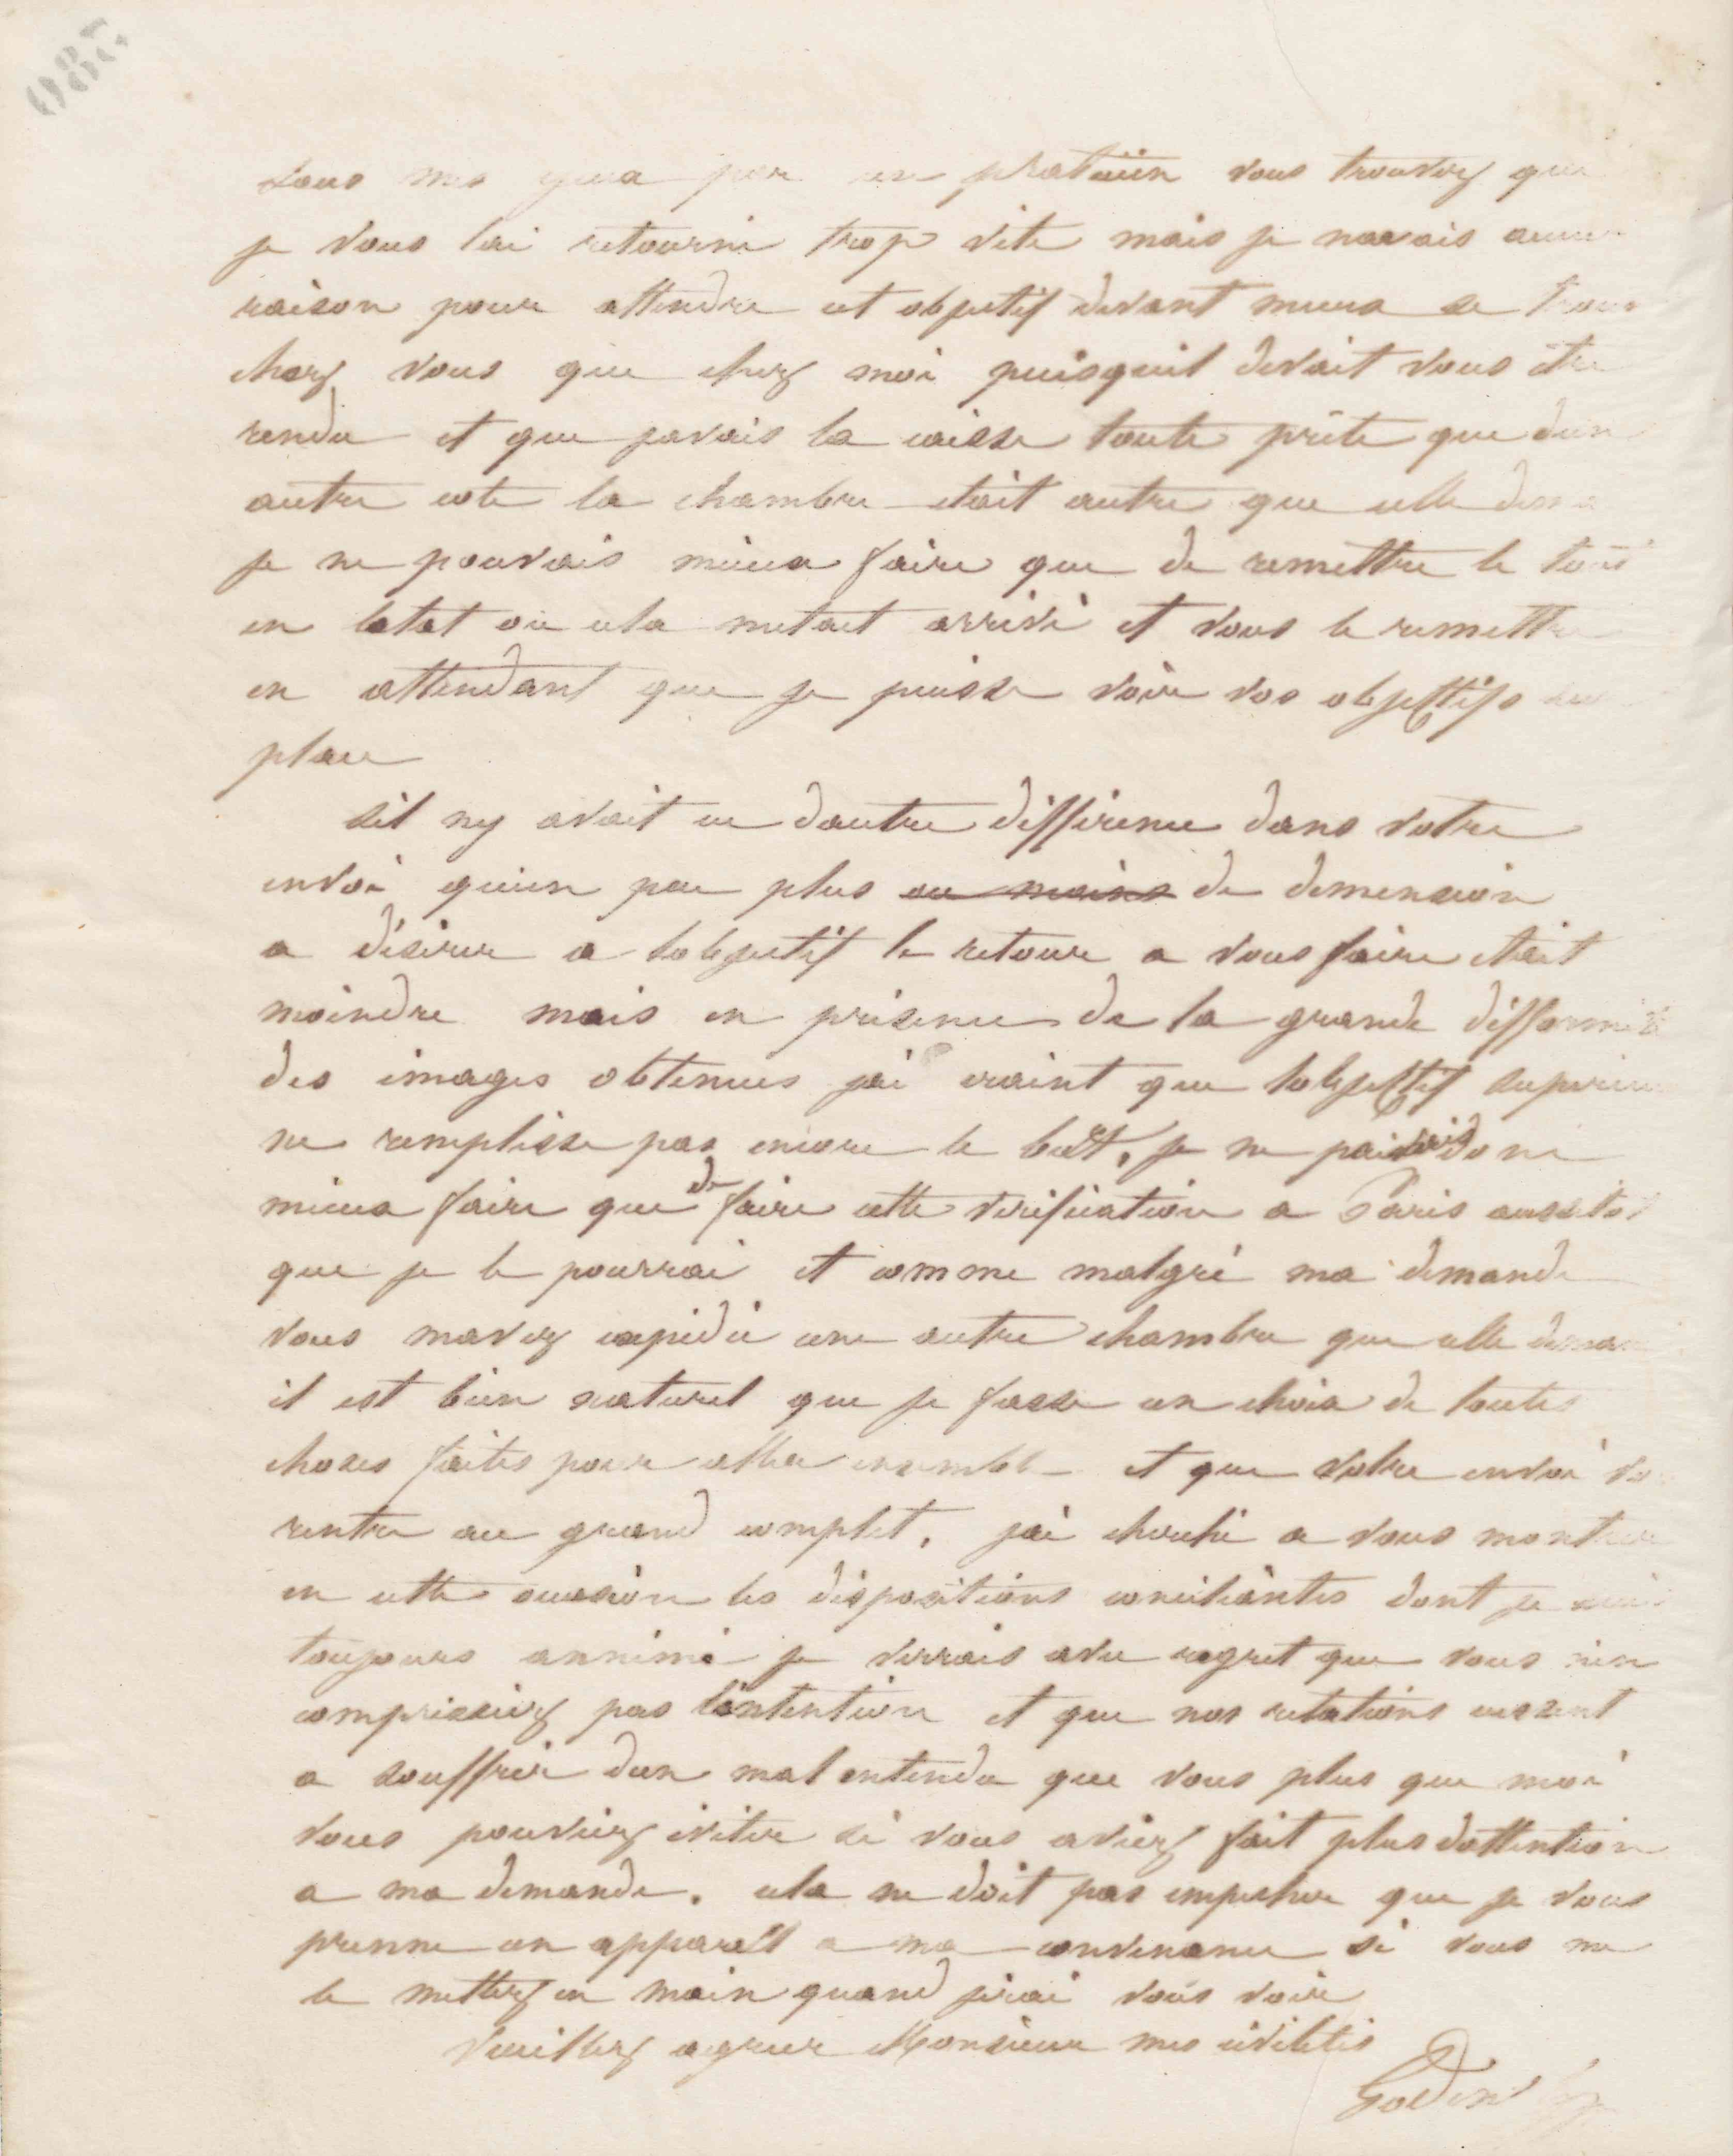 sous mes yeux par un praticien vous trouvez que
je vous lai retourné trop vite mais je navais aucune
raison pour attendre cet objectif devant mieux se trouver
chez vous que chez moi puisquil devait vous être
rendu et que javais la caisse toute prête que dun
autre coté la chambre etait autre que celle
je ne pouvais mieux faire que de remettre le tout
en letat ou cela metait arrivé et vous le remettre
en attendant que je puisse voir vos objectifs sur
place
sil ny avait eu dautre différence dans votre
envoi quun peu plus ou moins de demension
a désirer a lobjectif le retour a vous faire etait
moindre mais en présence de la grande difformité
des images obtenues jai craint que lobjectif superieur
ne remplisse pas encore le but, je ne donc
mieux faire que de faire cette vérification a Paris aussitot
que je le pourrai et comme malgré ma demande
vous mavez expédié une autre chambre que celle
il est bien naturel que je fasse un choix de toutes
choses faites pour aller ensemble et que votre envoi vous
rentre au grand complet. jai cherché a vous montrer
en cette occasion les dispositions conciliantes dont je suis
toujours annimé je verrais avec regret que vous nen
comprissiez pas lintention et que nos relations eussent
a souffrir dun mal entendu que vous plus que moi
vous pouviez éviter si vous aviez fait plus dattention
a ma demande. cela ne doit pas empecher que je vous
prenne un appareil a ma convenance si vous me
le mettez en main quand jirai vous voir
Veuillez agréer Monsieur mes civilités
Godin